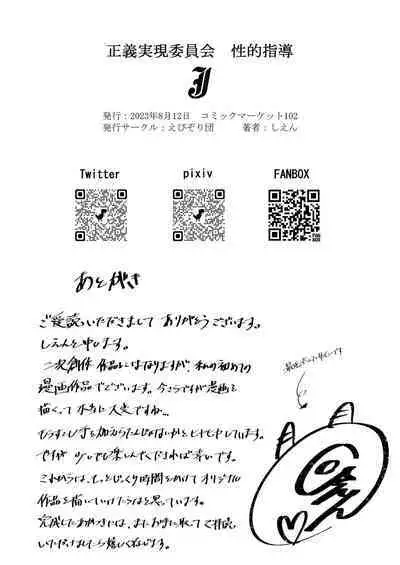 正義実現委員会 性的指導
J
発行:2023年8月12日 コミックマーケット102
発行サークル:えびぞり団 著者:しえん
Twitter pixiv FANBOX
あとがき
ご愛読いただきまして ありがとうございます。
しえんと申します。
二次創作作品にはなりますが、私の初めての
漫画作品でございます。今さらですが漫画を
描くって本当に大変ですね…
ですが 少しでも楽しんでくだされば幸いです。
これからは、もっとじっくり時間をかけてオリジナル
作品を描いていけたらなと思っています。
完成したあかつきには、またお手に取って拝読
いただけましたら嬉しく存じます。
しえん